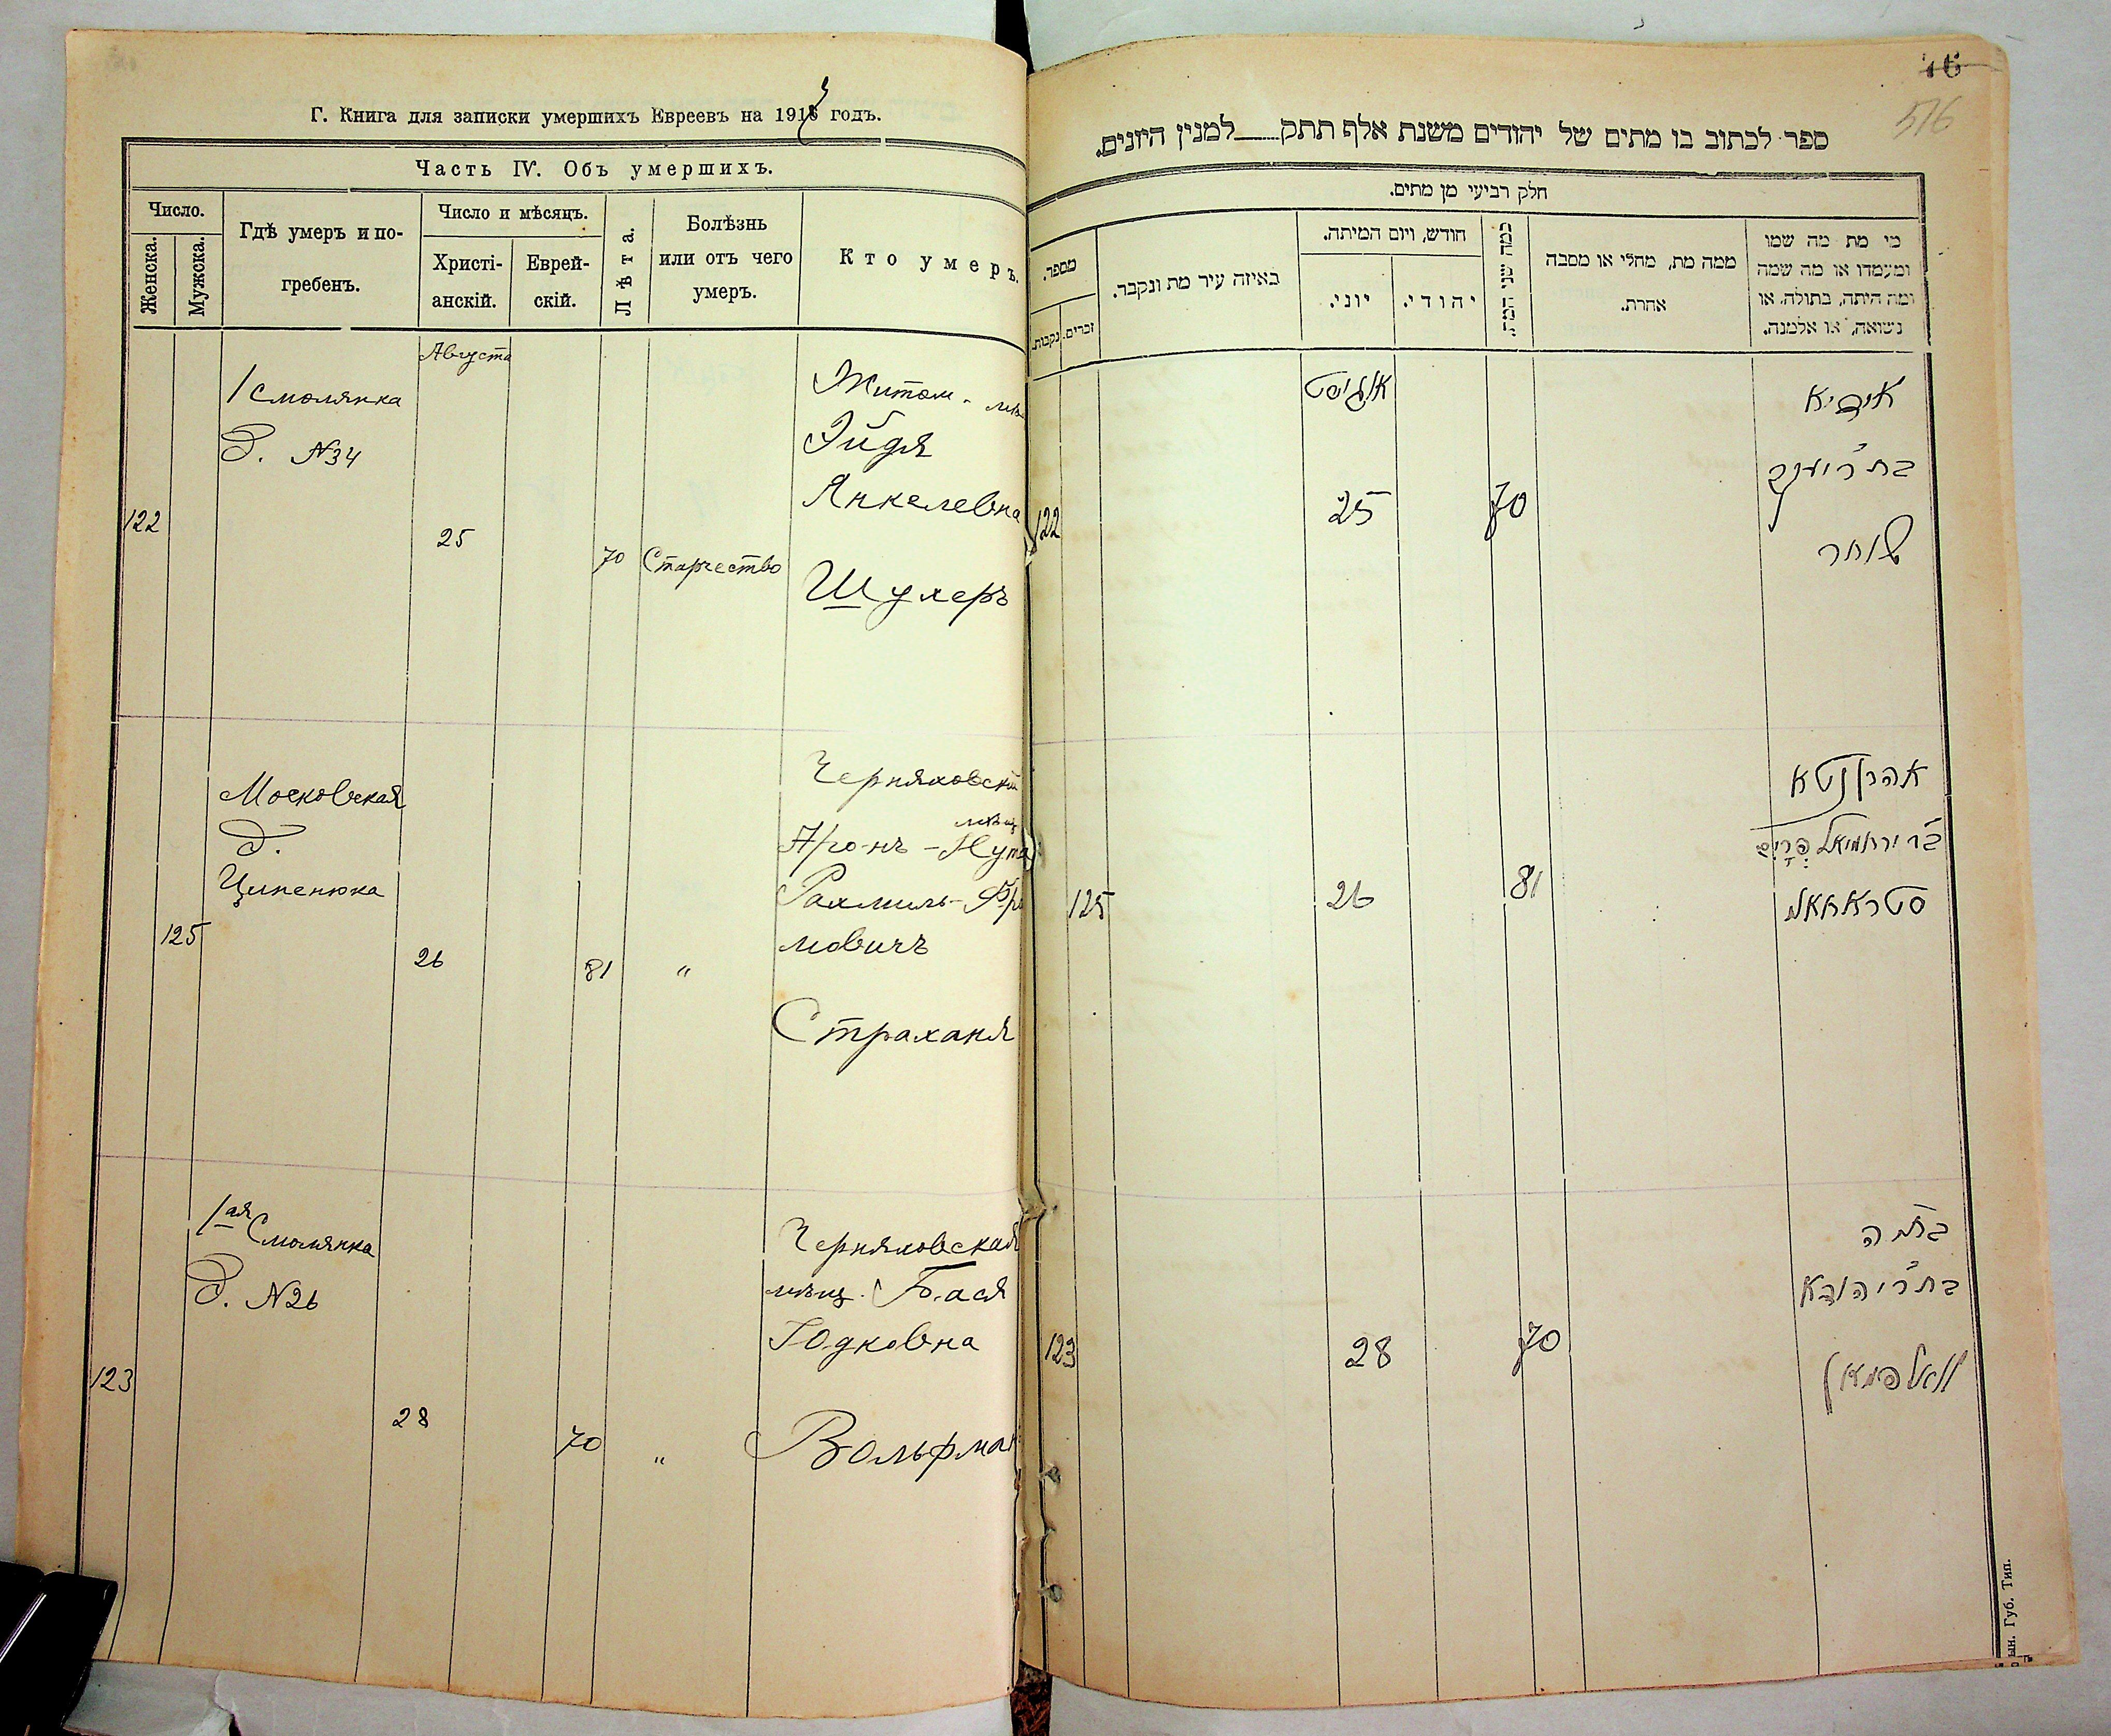 Г. Книга для записки умершихъ Евреевъ на 191 годъ.
Часть IV. Объ умершихъ.
Число.
Женска.
Мужска.
Гдѣ умеръ и по-
гребенъ.
Число и мѣсяцъ.
Христі-
анскій.
Еврей-
скій.
Лѣта.
Болѣзнь
или отъ чего
умеръ.
Кто умеръ.
Августа
122
1 Смолянка
д. №34
25
70
Старчество
Житом.
Эйдя
Янкелевна
Шухеръ
125
Московская
д.
Ципенюка
26
81
"
Черняховскій
Аронъ-Нута
Рахмиль-
мовичъ
Страханя
123
1ая Смолянка
д. №26
28
70
"
Черняховская
мѣщ. Бася
Юдковна
Вольфман
516
ספר לכתוב בו מתים של יהודים משנת אלף תתק למנין היונים.
חלק רביעי מן מתים.
מספר.
נקבות.
זכרים.
באיזה עיר מת ונקבר.
חודש, ויום המיתה.
יוני.
יהודי.
כמה שני המת.
ממה מת, מחלי או מסבה
אחרת.
מי מת מה שמו
ומעמדו או מה שמה
ומה היתה, בתולה, או
נשואה, או אלמנה.
אויגוסט
122
25
70
אידיא
בת ר' יענקב
שוחר
125
26
81
אהרן נטא
בר' ירחמיאל פרים
סטראחאנ
123
28
70
בתיה
בת ר' יהודא
וואלפמאן
ын. Губ. Тип.